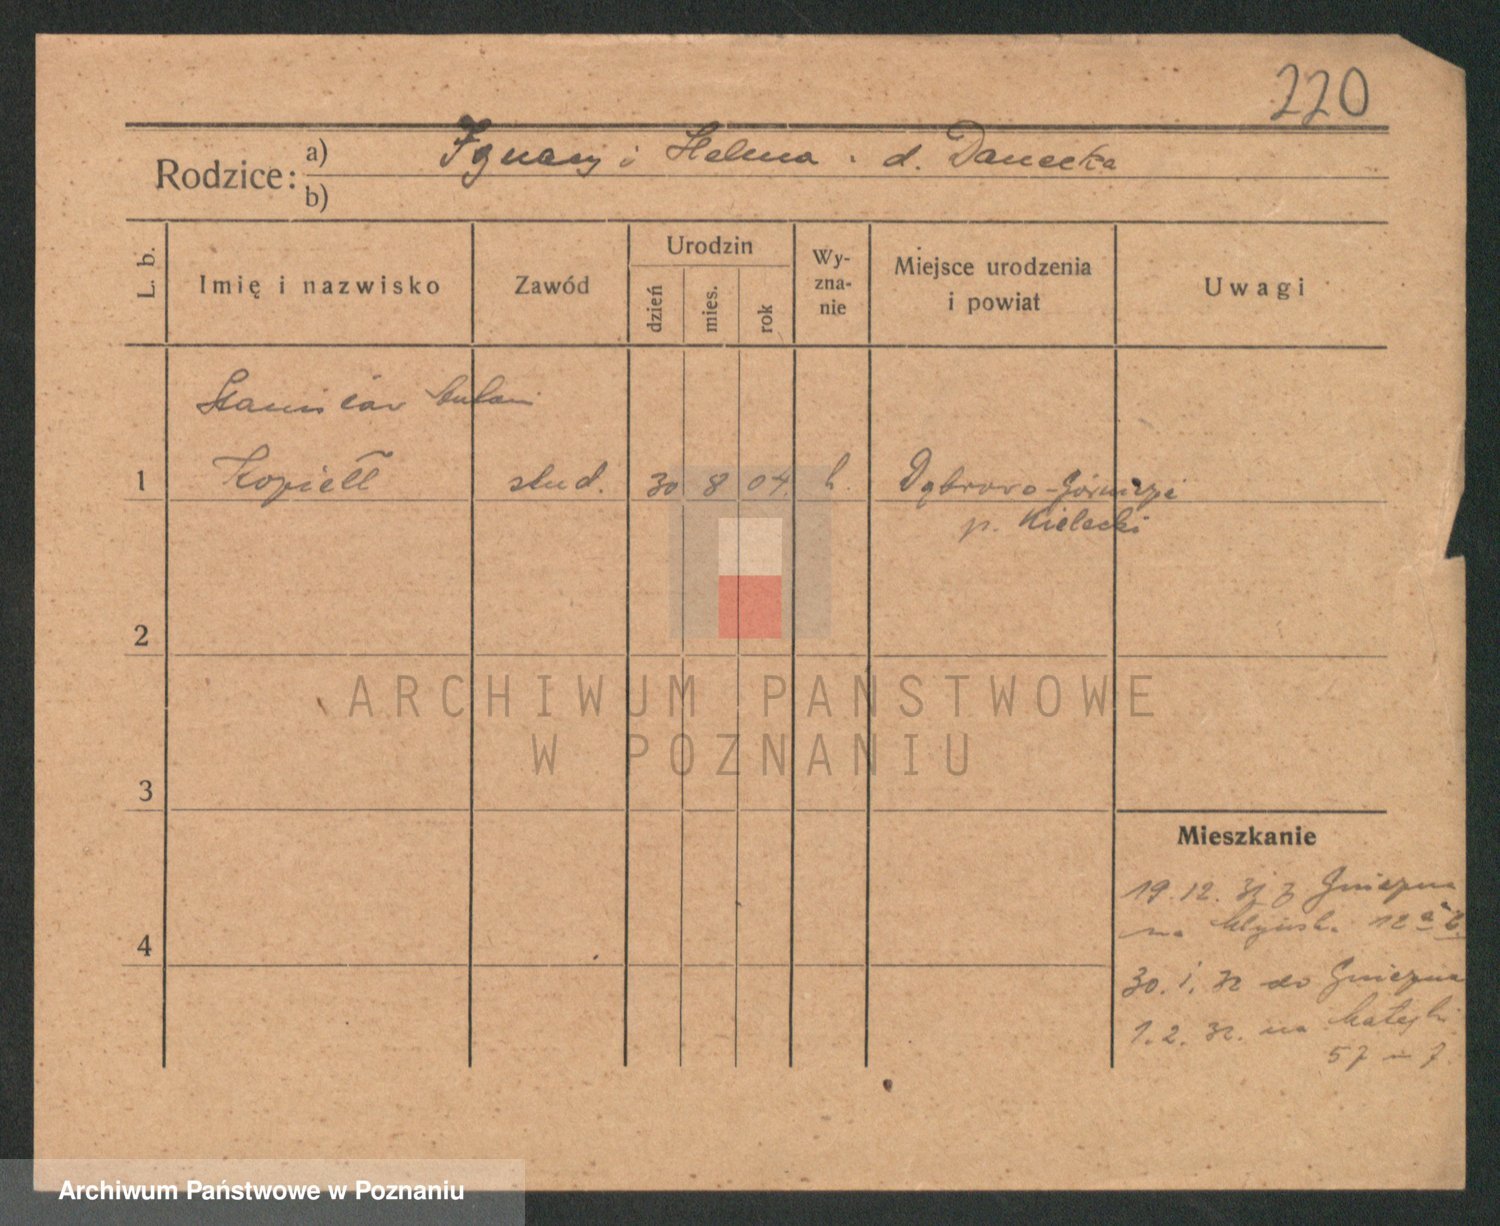 220
Rodzice: a) Ignacy i Helena z d. Danecka
b)
L. b.
Imię i nazwisko
Zawód
Urodzin
dzień
mies.
rok
Wy-
zna-
nie
Miejsce urodzenia
i powiat
Uwagi
Stanisław
1 Kopiell stud. 30 8 04
Dąbrowa-Górnicza
p. Kielecki
2
3
4
ARCHIWUM PAŃSTWOWE
W POZNANIU
Mieszkanie
19.12.31 z Gniezna
na 12
30.1.32 do Gniezna
1.2.32. na Matejki
57 m 7.
Archiwum Państwowe w Poznaniu